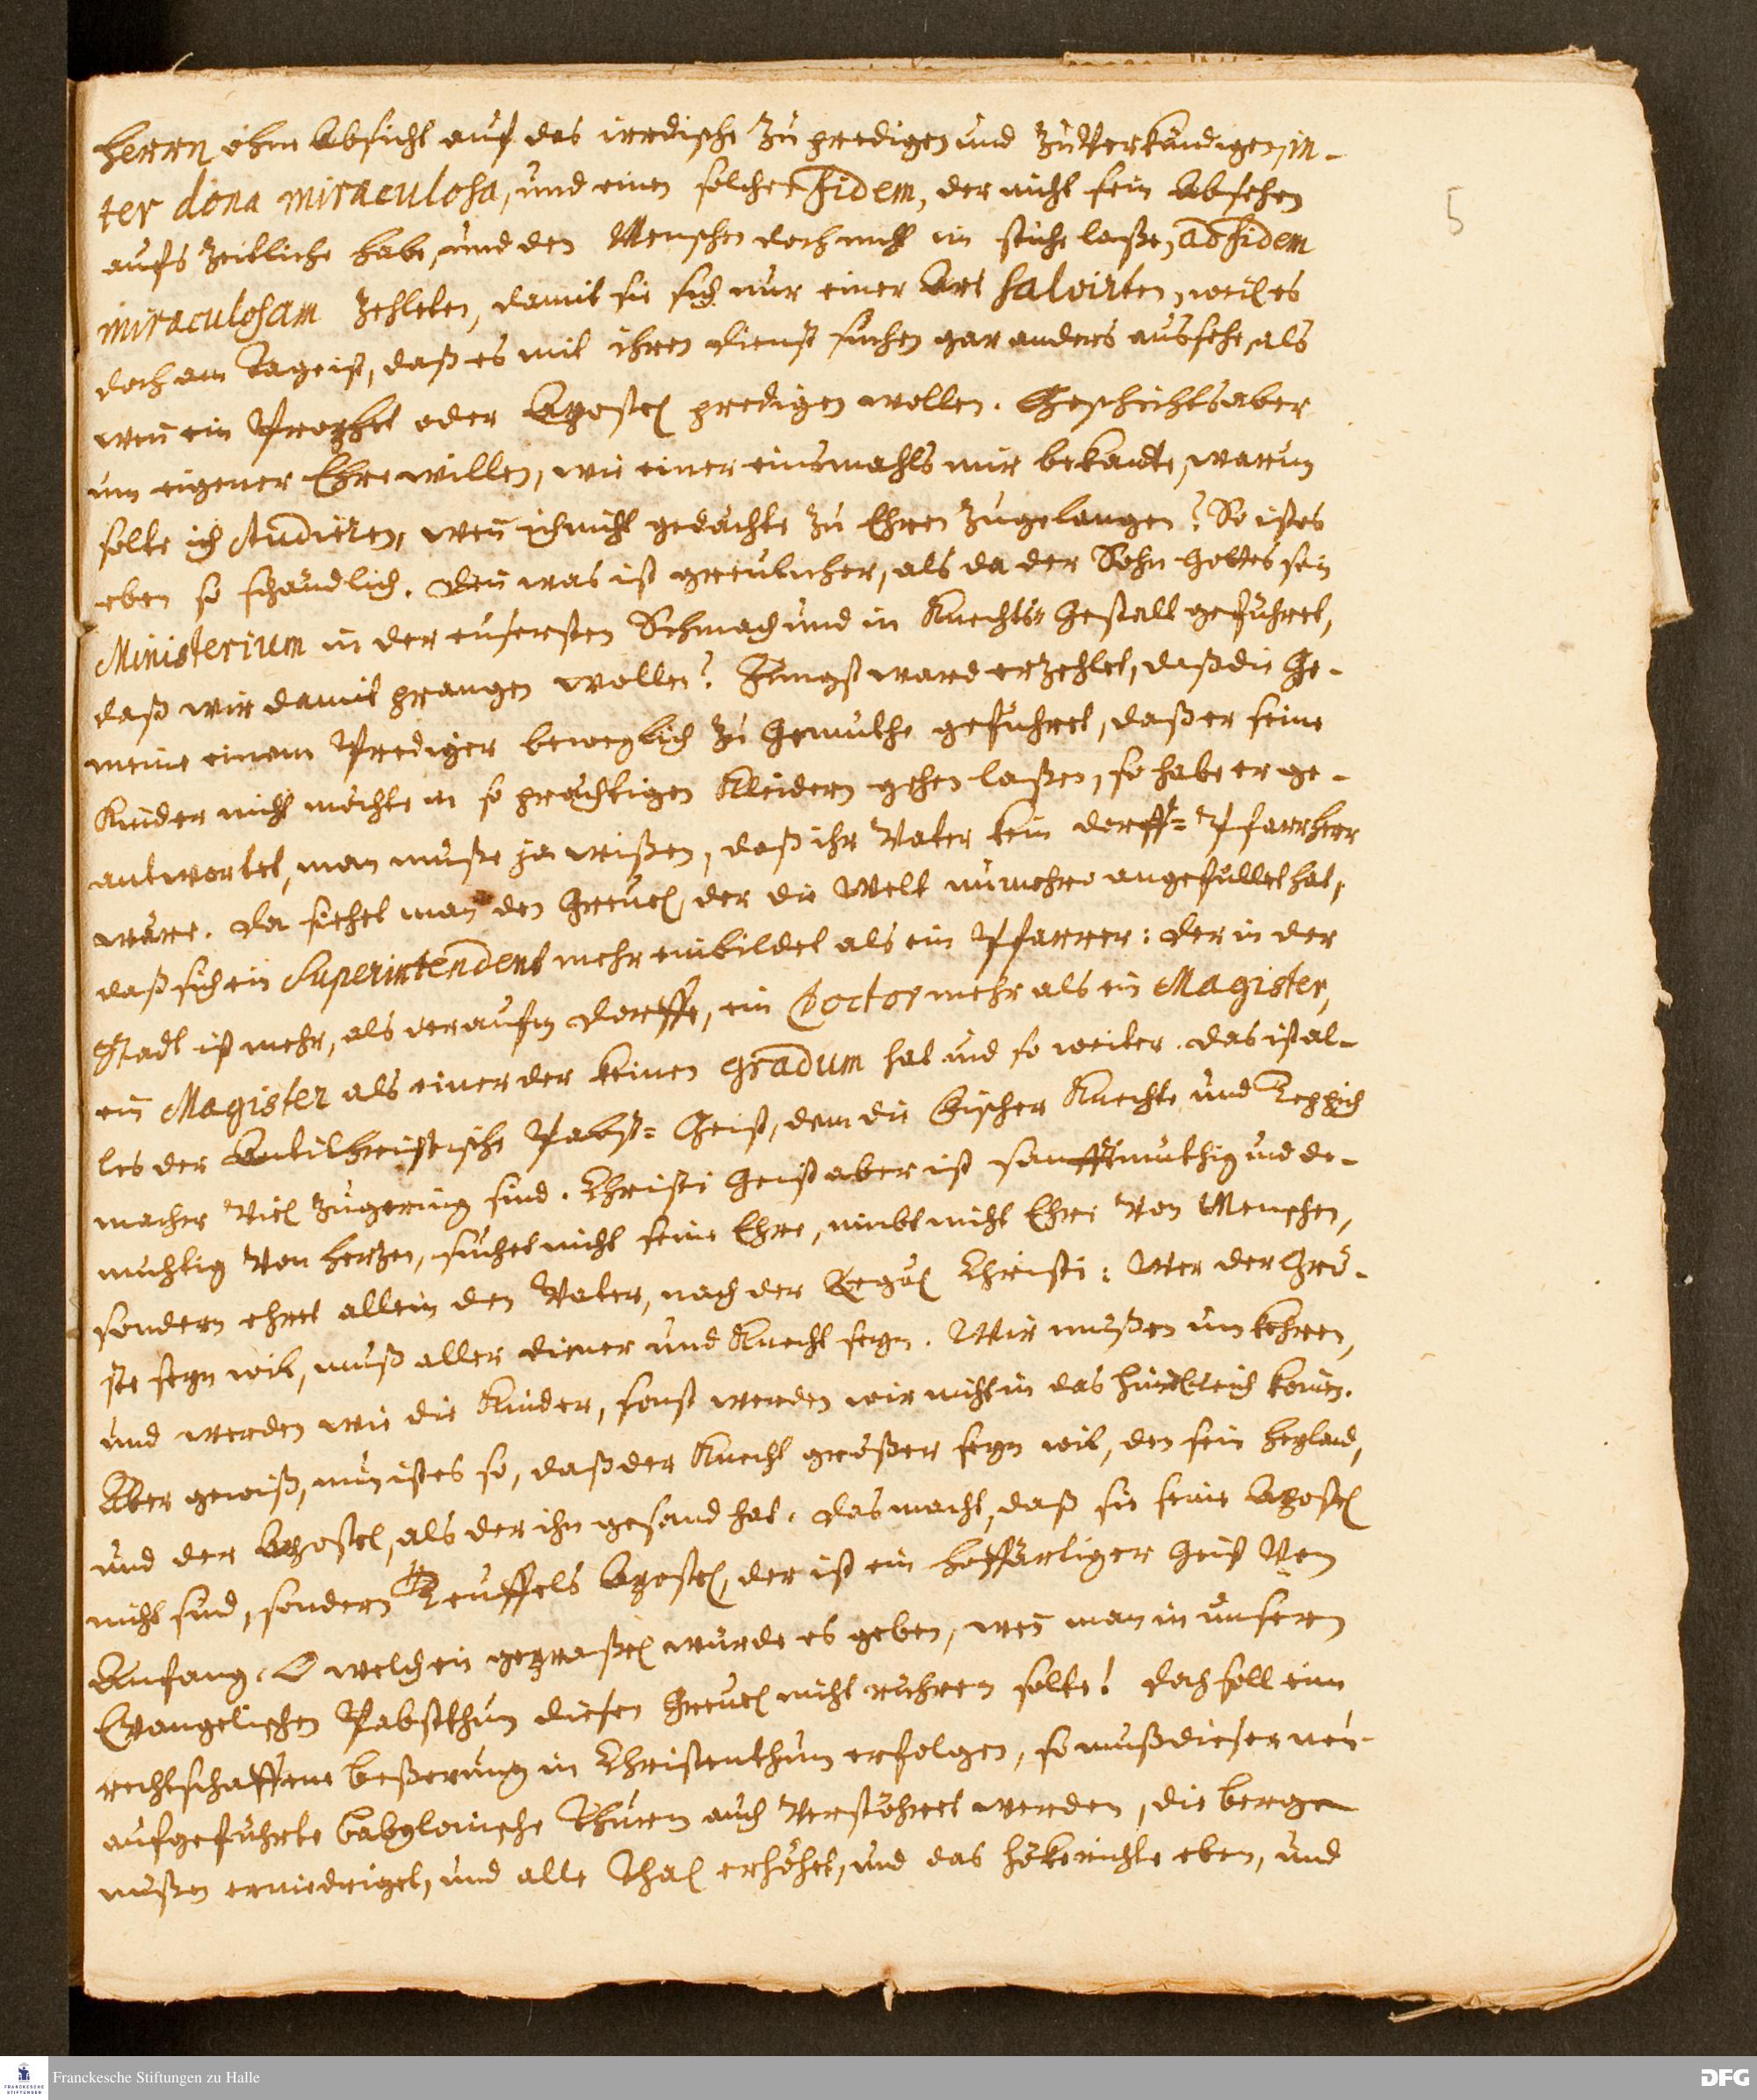 Herrn ohne Absicht auf das irrdische zu predigen und zu verkündigen, in-
ter dona miraculosa, und einen solchen fidem, der nicht sein Absehen
aufs zeitliche habe, und den Menschen doch nicht im stiche laße, ad fidem
miraculosam zehleten, damit sie sich nur einer Art salvirten, weil es
doch am Tage ist, daß es mit ihren dienst suchen gar anders aussehe, als
wen̄ ein Prophet oder Apostel predigen wollen. Geschichts aber
um eigener Ehre willen, wie einer einsmahls mir bekante, warum
solte ich studieren, wen̄ ich nicht gedächte zu Ehren zugelangen? So ist es
eben so schändlich. den̄ was ist greulicher, als da der Sohn Gottes sein
Ministerium in der eusersten Schmach und in Knechts Gestalt geführet,
daß wir damit prangen wollen? Jüngst ward erzehlet, daß die Ge-
meine einem Prediger beweglich zu Gemüthe geführet, daß er seine
Kinder nicht möchte in so prächtigen Kleidern gehen laßen, so habe er ge-
antwortet, man müste ja wißen, daß ihr Vater kein dorff= Pfarrherr
wäre. Da siehet man den Greuel, der die Welt nunmehro angefüllet hat,
daß sich ein Superintendent mehr einbildet als ein Pfarrer: der in der
Stadt ist mehr, als der aufm Dorffe, ein Doctor mehr als ein Magister,
ein Magister als einer der keinen gradum hat und so weiter. Das ist al-
les der Antichristische Pabst= Geist, dem die Fischer Knechte und Teppich
macher viel zu gering sind. Christi Geist aber ist sanfftmüthig und de-
müthig von Hertzen, suchet nicht seine Ehre, nimbt nicht Ehre von Menschen,
sondern ehret allein den Vater, nach der Regul Christi: Wer der Grö-
ste seyn wil, muß aller diener und Knecht seyn. Wir müßen umkehren,
und werden wie die Kinder, sonst werden wir nicht in das Him̄elreich kom̄en.
Aber gewiß, nun ist es so, daß der Knecht größer seyn wil, den sein Heyland,
und der Apostel, als der ihn gesand hat. Das macht, daß sie seine Apostel
nicht sind, sondern Teuffels Apostel, der ist ein hoffärtiger Geist von
Anfang. O welch ein gepraßel würde es geben, wen̄ man in unserm
Evangelischen Pabstthum diesen Greuel nicht rühren solte! Doch soll eine
rechtschaffene Beßerung in Christenthum erfolgen, so muß dieser neu-
aufgeführte Babylonische Thurm auch verstöhret werden, die berge
müßen erniedriget, und alle Thal erhöhet, und das höckerichte eben, und
5
Franckesche Stiftungen zu Halle
DFG